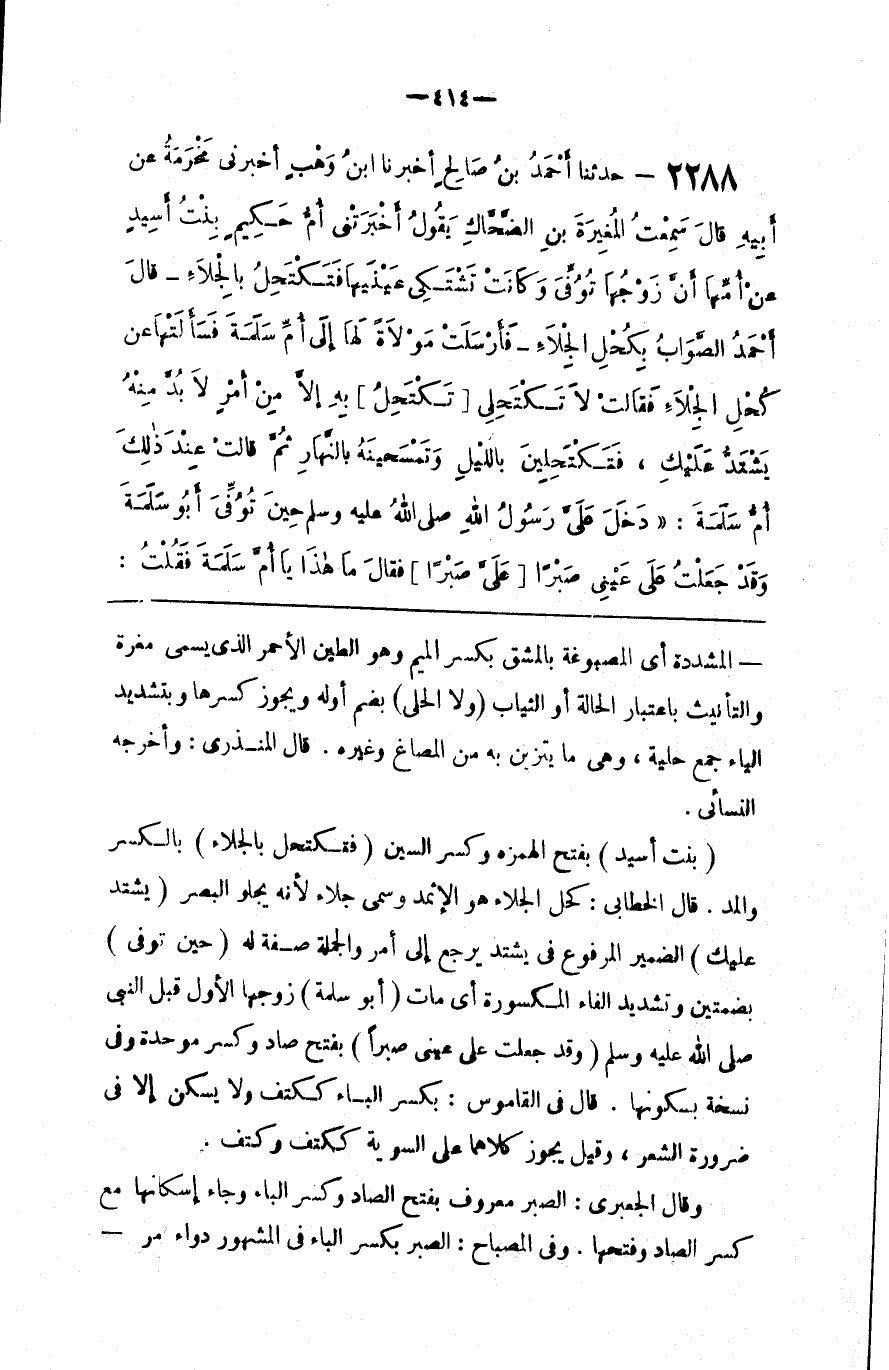 —٤١٤—
٢٢٨٨ — حدثنا أَحْمَدُ بنُ صَالِحٍ أخبرنا ابنُ وَهْبٍ أخبرنى مَخْرَمَةُ عن
أَبِيهِ قالَ سَمِعْتُ المُغِيرَةَ بنِ الضَّحَّاكِ يَقُولُ أَخْبَرَتْنِى أُمُّ حَكِيمٍ بِنْتُ أَسِيدٍ
عنْ أُمِّهَا أَنَّ زَوْجُهَا تُوُفِّىَ وَكَانَتْ تَشْتَكِى عَيْنَيْهَا فَتَكْتَحِلُ بالْجِلَاءِ — قالَ
أَحْمَدُ الصَّوَابُ بِكُحْلِ الْجِلَاءِ — فَأَرْسَلَتْ مَوْلَاةً لَهَا إِلَى أُمِّ سَلَمَةَ فَسَأَلَتْهَا عن
كُحْلِ الْجِلَاءِ فَقالَتْ لَا تَكْتَحِلِى [ تَكْتَحِلُ ] بِهِ إِلاَّ مِنْ أَمْرٍ لَا بُدَّ مِنْهُ
يَشْتَدُّ عَلَيْكِ ، فَتَكْتَحِلِينَ باللَّيْلِ وَتَمْسَحِينَهُ بالنَّهَارِ ثُمَّ قالتْ عِنْدَ ذَلِكَ
أُمُّ سَلَمَةَ : « دَخَلَ عَلَىَّ رَسُولُ اللهِ صلى اللهُ عليه وسلم حِينَ تُوُفِّىَ أَبُو سَلَمَةَ
وَقَدْ جَعَلْتُ عَلَى عَيْنِى صَبْرًا [ عَلَىَّ صَبْرًا ] فقالَ ما هٰذَا يا أُمَّ سَلَمَةَ فَقُلْتُ :
— المشددة أى المصبوغة بالمشق بكسر الميم وهو الطين الأحمر الذى يسمى مغرة
والتأنيث باعتبار الحالة أو الثياب (ولا الحلى) بضم أوله ويجوز كسرها وبتشديد
الياء جمع حلية ، وهى ما يتزين به من المصاغ وغيره . قال المنذرى : وأخرجه
النسائى .
( بنت أسيد ) بفتح الهمزه وكسر السين ( فتكتحل بالجلاء ) بالكسر
والمد . قال الخطابى : كحل الجلاء هو الإثمد وسمى جلاء لأنه يجلو البصر ( يشتد
عليك ) الضمير المرفوع فى يشتد يرجع إلى أمر والجملة صفة له ( حين توفى )
بضمتين وتشديد الفاء المكسورة أى مات ( أبو سلمة ) زوجها الأول قبل النبى
صلى الله عليه وسلم ( وقد جعلت على عينى صبراً ) بفتح صاد وكسر موحدة وفى
نسخة بسكونها . قال فى القاموس : بكسر الباء ككتف ولا يسكن إلا فى
ضرورة الشعر ، وقيل يجوز كلاهما على السوية ككتف وكتف .
وقال الجعبرى : الصبر معروف بفتح الصاد وكسر الباء وجاء إسكانها مع
كسر الصاد وفتحها . وفى المصباح : الصبر بكسر الباء فى المشهور دواء مر —